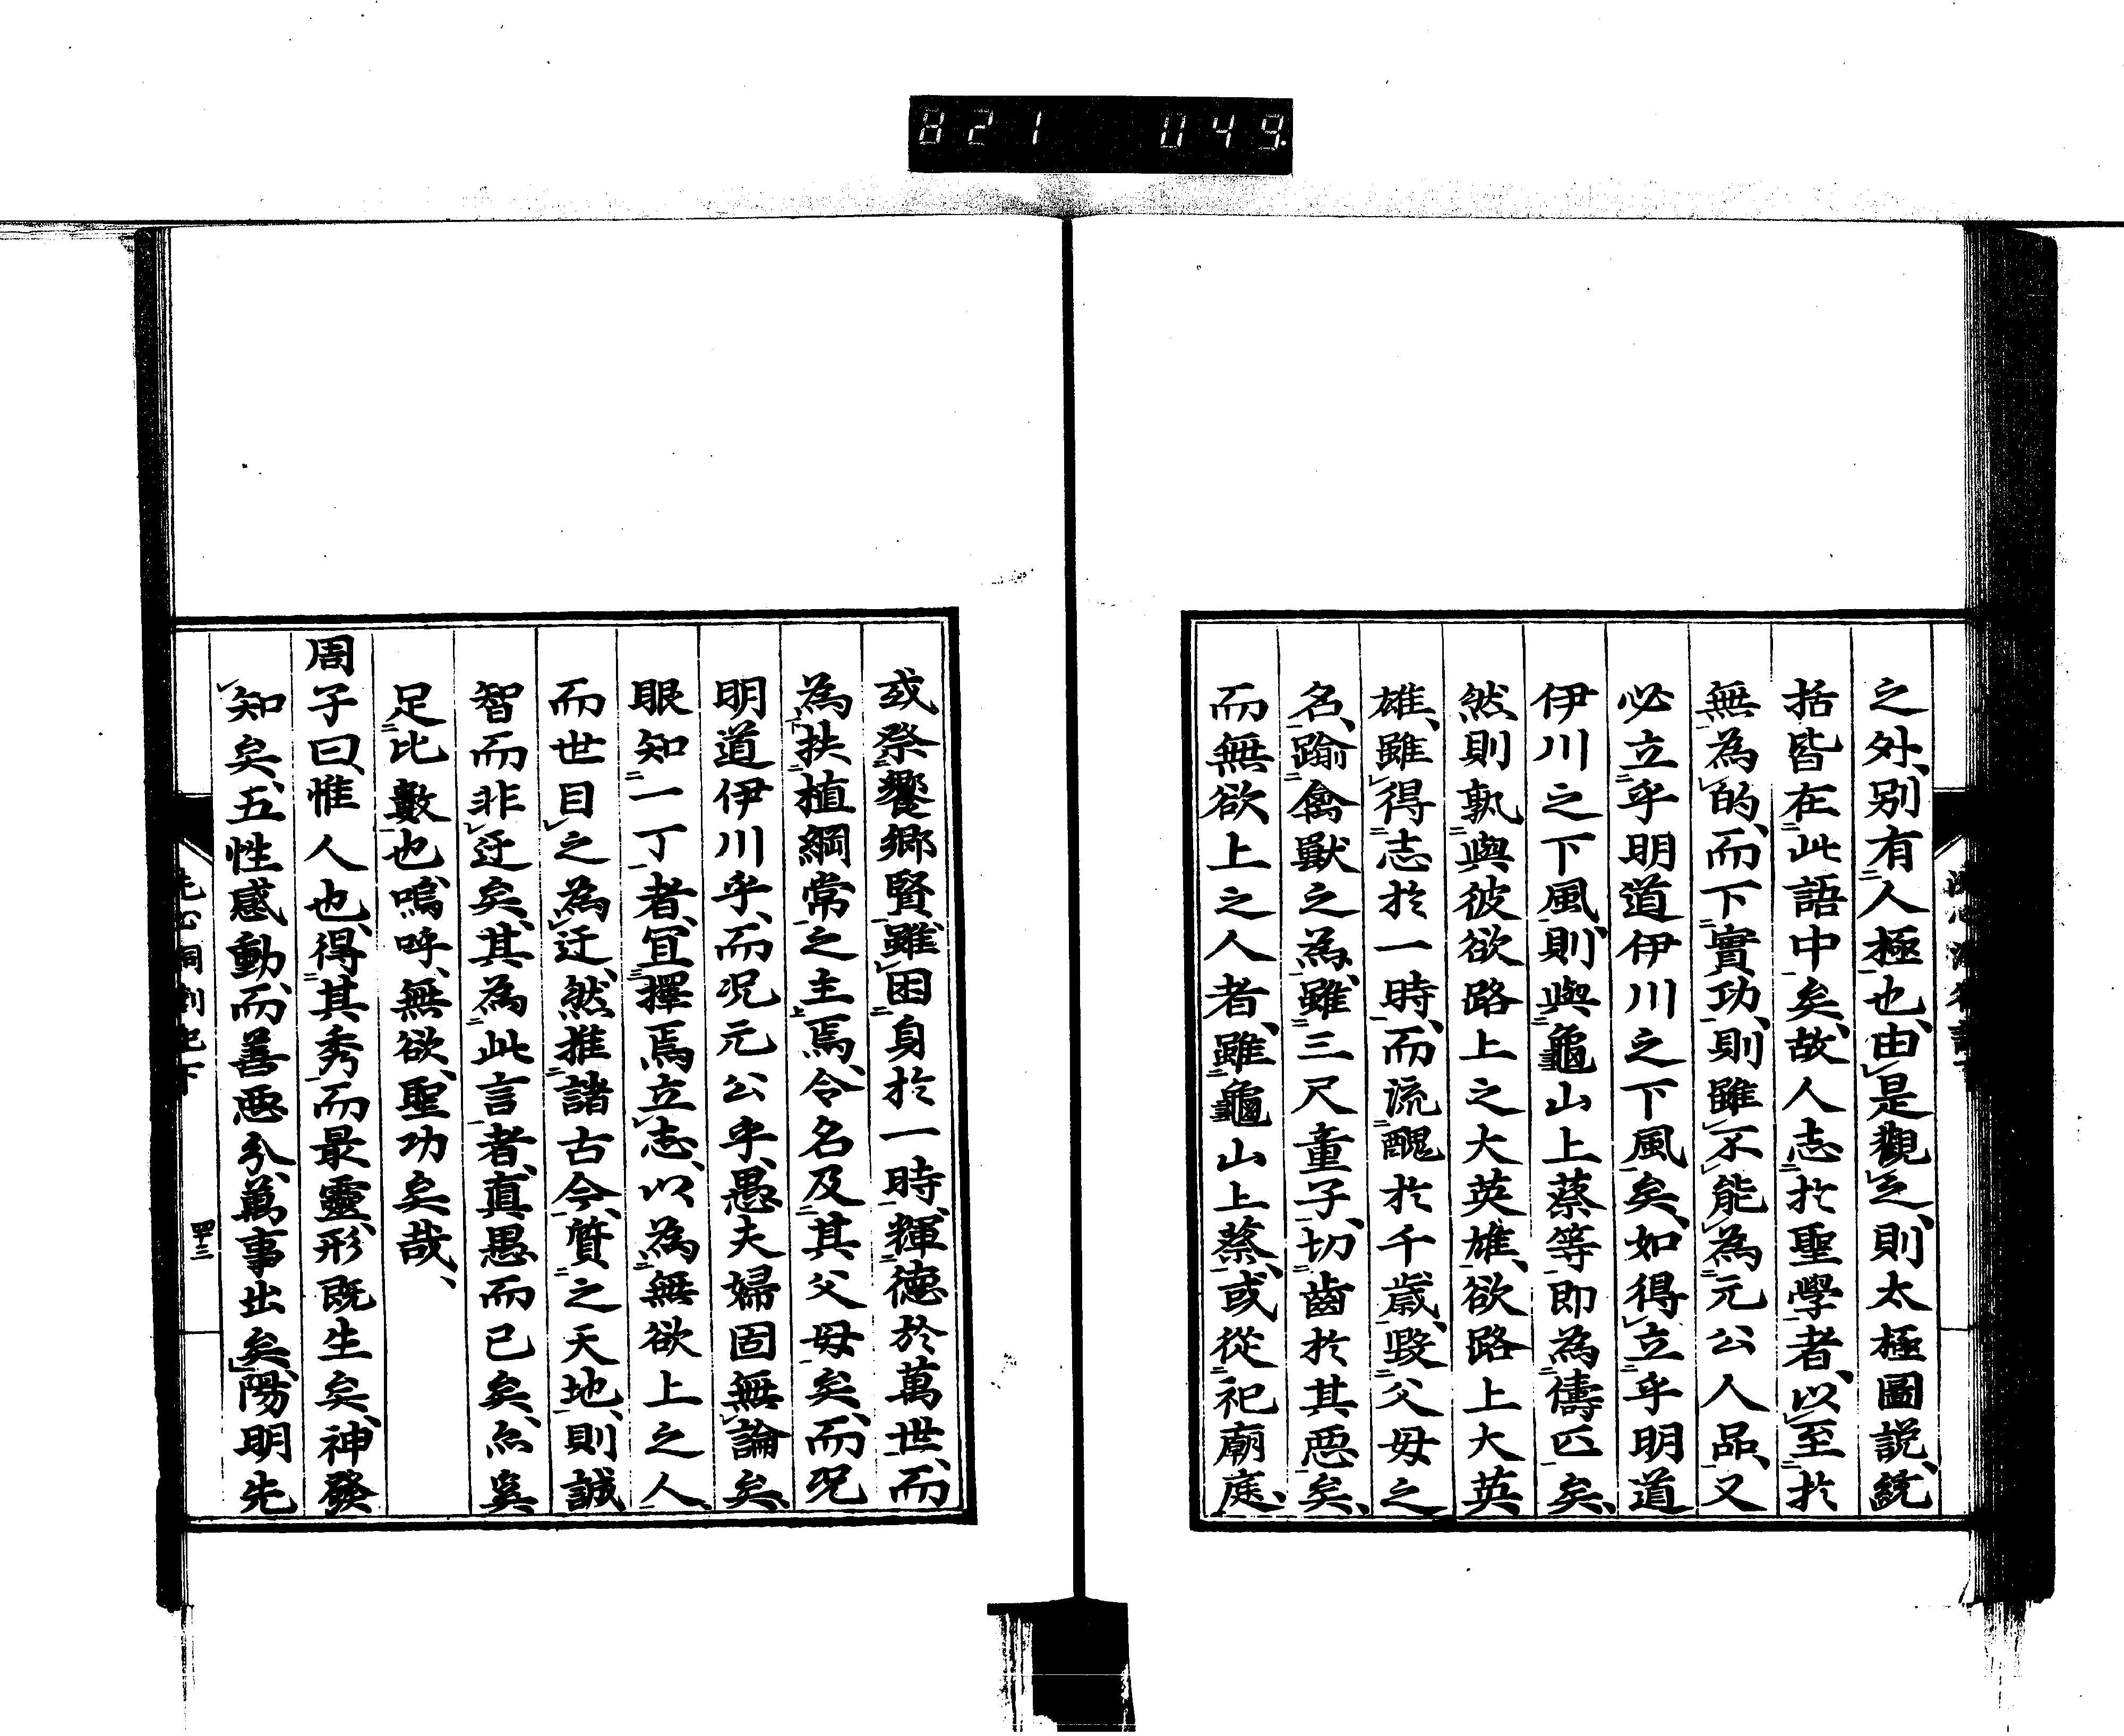 821 049
之外、別有人極也、由是觀之、則太極圖説、統
括皆在此語中矣、故人志於聖學者、以至於
無為的、而下實功、則雖不能為元公人品、又
必立乎明道伊川之下風矣、如得立乎明道
伊川之下風、則與龜山上蔡等即為儔匹矣、
然則孰與彼欲路上之大英雄、欲路上大英
雄、雖得志於一時、而流醜於千歳、毀父母之
名、踰禽獸之為、雖三尺童子、切齒於其惡矣、
而無欲上之人者、雖龜山上蔡、或從祀廟庭、
或祭饗鄉賢、雖困身於一時、輝德於萬世、而
為扶植綱常之主焉、令名及其父母矣、而況
明道伊川乎、而況元公乎、愚夫婦固無論矣、
眼知一丁者、宜擇焉立志、以為無欲上之人、
而世目之為迂、然推諸古今、質之天地、則誠
智而非迂矣、其為此言者、真愚而已矣、亦奚
足比數也、嗚呼、無欲、聖功矣哉、
周子曰、惟人也、得其秀而最靈、形既生矣、神發
知矣、五性感動、而善惡分、萬事出矣、陽明先
洞劄記下
四十三